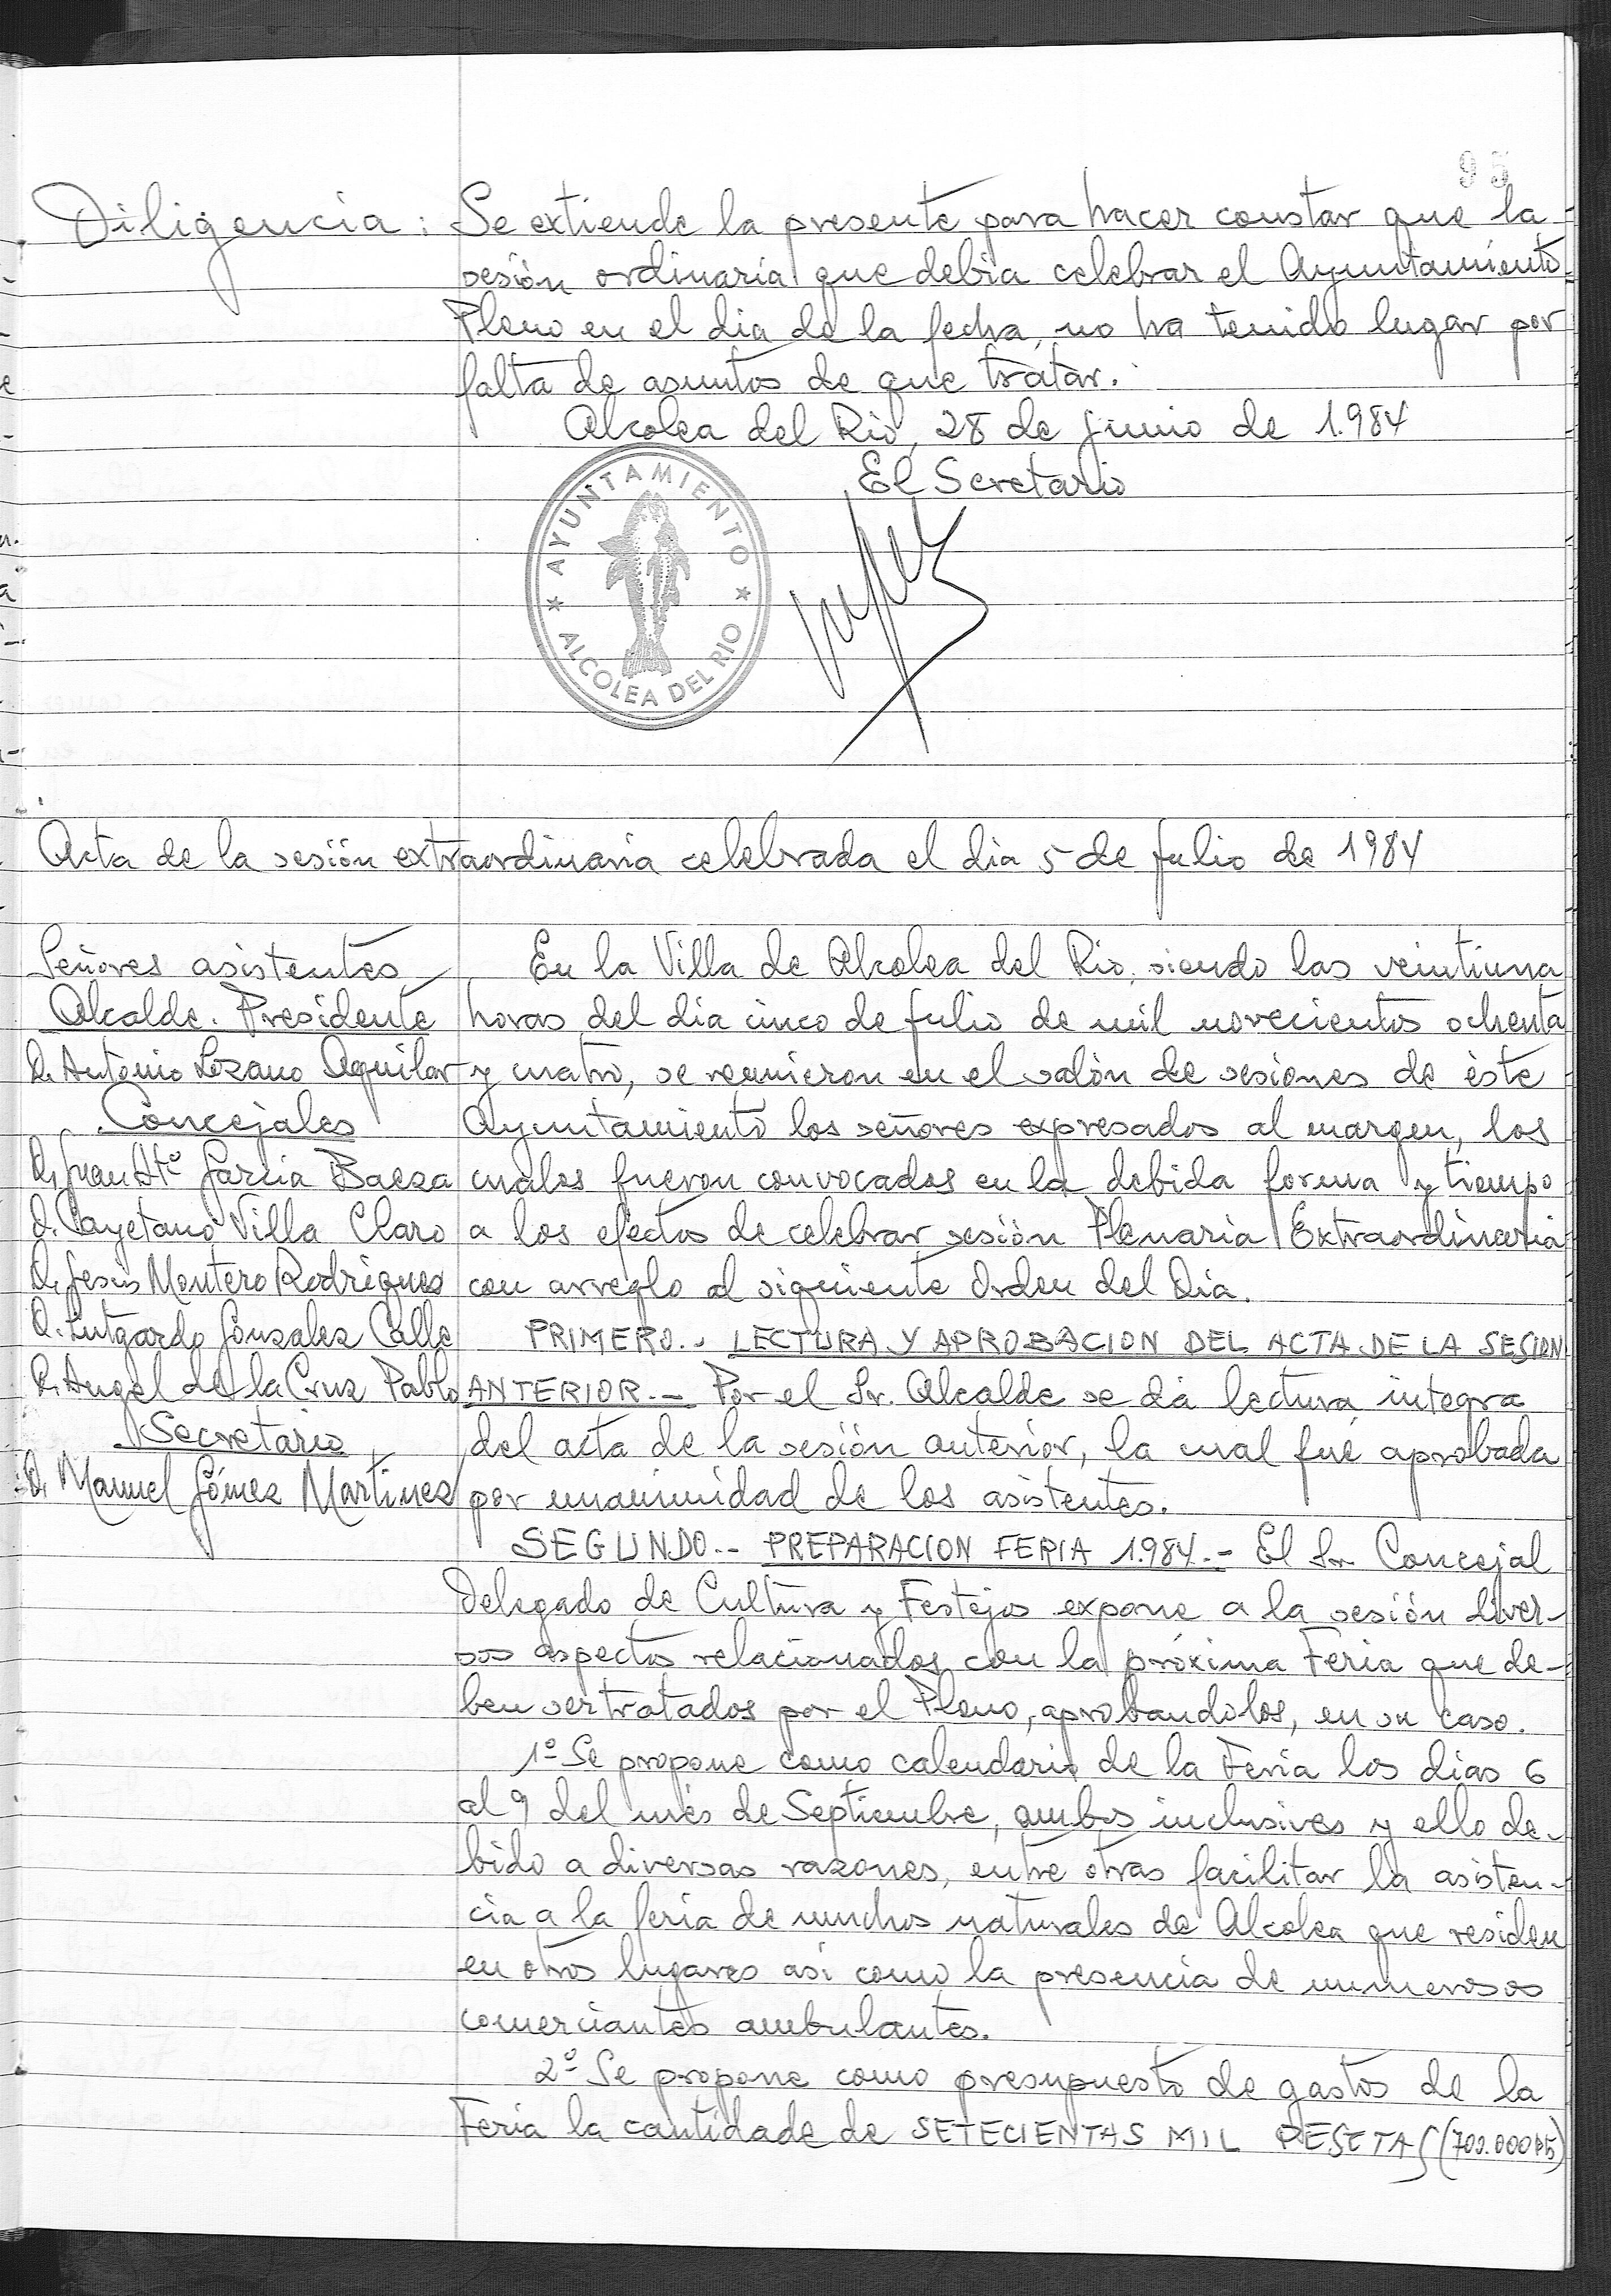 95
Diligencia: Se extiende la presente para hacer constar que la
sesión ordinaria que debia celebrar el Ayuntamiento
Pleno en el dia de la fecha, no ha tenido lugar por
falta de asuntos de que tratar.
Alcolea del Rio, 28 de junio de 1.984
El Secretario
AYUNTAMIENTO
ALCOLEA DEL RIO
Acta de la sesión extraordinaria celebrada el dia 5 de julio de 1984
Señores asistentes
Alcalde. Presidente
D. Antonio Lozano Aguilar
Concejales
D. Juan Atº Garcia Baeza
D. Cayetano Villa Claro
D. Jesús Montero Rodriguez
D. Lutgardo Gonzalez Calle
D. Angel de la Cruz Pablo
Secretario
D. Manuel Gómez Martinez
En la Villa de Alcolea del Rio, siendo las veintiuna
horas del dia cinco de julio de mil novecientos ochenta
y cuatro, se reunieron en el salón de sesiones de éste
Ayuntamiento los señores expresados al margen, los
cuales fueron convocados en la debida forma y tiempo
a los efectos de celebrar sesión Plenaria Extraordinaria
con arreglo al siguiente Orden del Dia.
PRIMERO.- LECTURA Y APROBACION DEL ACTA DE LA SESION
ANTERIOR.- Por el Sr. Alcalde se dá lectura integra
del acta de la sesión anterior, la cual fué aprobada
por unanimidad de los asistentes.
SEGUNDO.- PREPARACION FERIA 1.984.- El Sr. Concejal
Delegado de Cultura y Festejos expone a la sesión diver-
sos aspectos relacionados con la próxima Feria que de-
ben ser tratados por el Pleno, aprobandolos, en su caso.
1º- Se propone como calendario de la Feria los dias 6
al 9 del més de Septiembre, ambos inclusives y ello de-
bido a diversas razones, entre otras facilitar la asisten-
cia a la feria de muchos naturales de Alcolea que residen
en otros lugares asi como la presencia de numerosos
comerciantes ambulantes.
2º- Se propone como presupuesto de gastos de la
Feria la cantidade de SETECIENTAS MIL PESETAS (700.000 Pts)